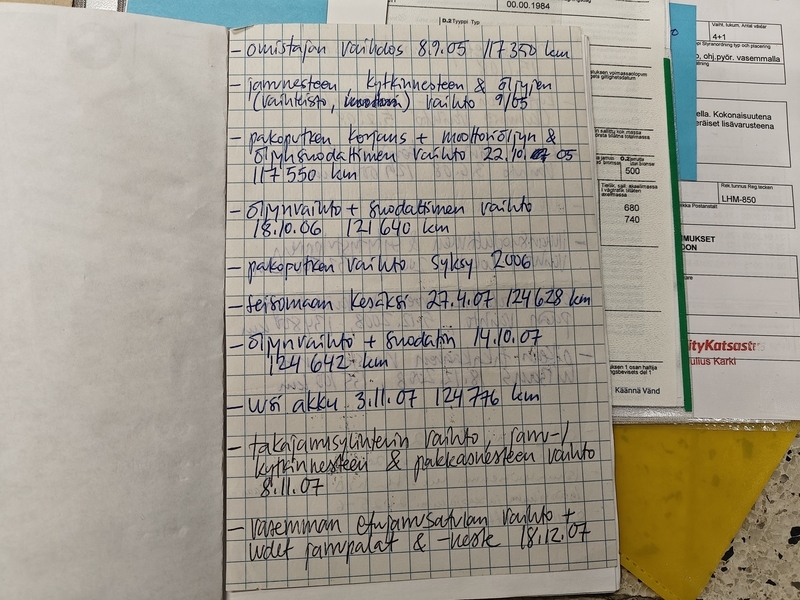 - omistajan vaihdos 8.9.05 117350 km
- jarrunesteen, kytkinnesteen & öljyjen
(vaihteisto, ) vaihto 9/05
- pakoputken korjaus + moottoriöljyn &
öljynsuodattimen vaihto 22.10. 05
117 550 km
- öljynvaihto + suodattimen vaihto
18.10.06 121 640 km
- pakoputken vaihto syksy 2006
- seisomaan kesäksi 27.4.07 124 628 km
- öljynvaihto + suodatin 14.10.07
124 642 km
- uusi akku 3.11.07 124 776 km
- takajarrusylinterin vaihto, jarru-/
kytkinnesteen & pakkasnesteen vaihto
8.11.07
- vasemman etujarrusatulan vaihto +
uudet jarrupalat & -neste 18.12.07
00.00.1984
D.2 Tyyppi Typ
500
680
740
Käännä Vänd
Vaihl. lukum. Antal växlar
4+1
ohj.pyör. vasemmalla
ella. Kokonaisuutena
eräiset lisävarusteena
Rek.tunnus Reg.tecken
LHM-850
Postanstalt
MUKSET
OON
ityKatsastus
ulius Karki